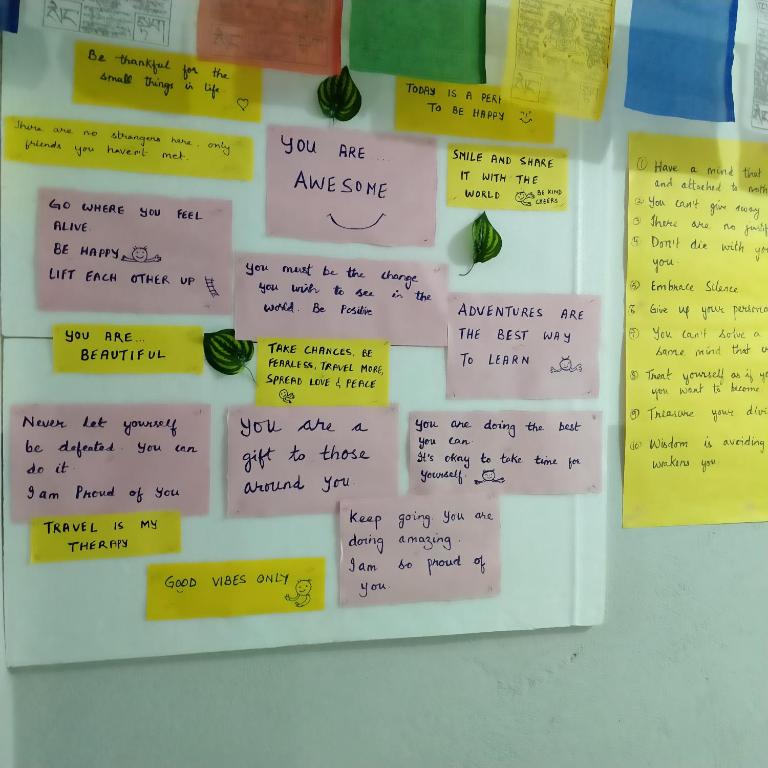 Be thankful for the
small things in life.
TODAY IS A
TO BE HAPPY
There are no strangers here. only
friends you haven't met.
YOU ARE...
AWESOME
SMILE AND SHARE
IT WITH THE
WORLD
BE KIND
CHEERS
GO WHERE YOU FEEL
ALIVE.
BE HAPPY
LIFT EACH OTHER UP
you must be the change
you wish to see in the
world. Be Positive
ADVENTURES ARE
THE BEST WAY
TO LEARN
YOU ARE...
BEAUTIFUL
TAKE CHANCES, BE
FEARLESS, TRAVEL MORE,
SPREAD LOVE & PEACE
Never let yourself
be defeated. You can
do it.
I am Proud of you
you are a
gift to those
around you.
you are doing the best
you can.
It's okay to take time for
yourself.
TRAVEL IS MY
THERAPY
Keep going you are
doing amazing.
I am so proud of
you.
GOOD VIBES ONLY
① Have a mind that
and attached to
② You can't give away
③ There are no
④ Don't die with
you.
⑤ Embrace Silence
⑥ Give up your
⑦ You can't solve a
same mind that
⑧ Treat yourself as if
you want to become
⑨ Treasure your
⑩ Wisdom is avoiding
weakens you.